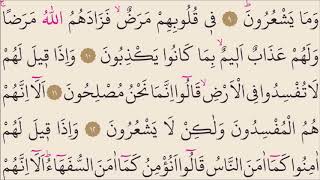 وَمَا يَشْعُرُونَ ۹ فِى قُلُوبِهِمْ مَرَضٌ ۙ فَزَادَهُمُ اللّٰهُ مَرَضًا ۚ
وَلَهُمْ عَذَابٌ اَلِيمٌ ۙ بِمَا كَانُوا يَكْذِبُونَ ۱۰ وَاِذَا قِيلَ لَهُمْ
لَا تُفْسِدُوا فِى الْاَرْضِ ۙ قَالُوا اِنَّمَا نَحْنُ مُصْلِحُونَ ۱۱ اَلَٓا اِنَّهُمْ
هُمُ الْمُفْسِدُونَ وَلٰكِنْ لَا يَشْعُرُونَ ۱۲ وَاِذَا قِيلَ لَهُمْ
اٰمِنُوا كَمَٓا اٰمَنَ النَّاسُ قَالُٓوا اَنُؤْمِنُ كَمَٓا اٰمَنَ السُّفَهَٓاءُ ۜ اَلَٓا اِنَّهُمْ